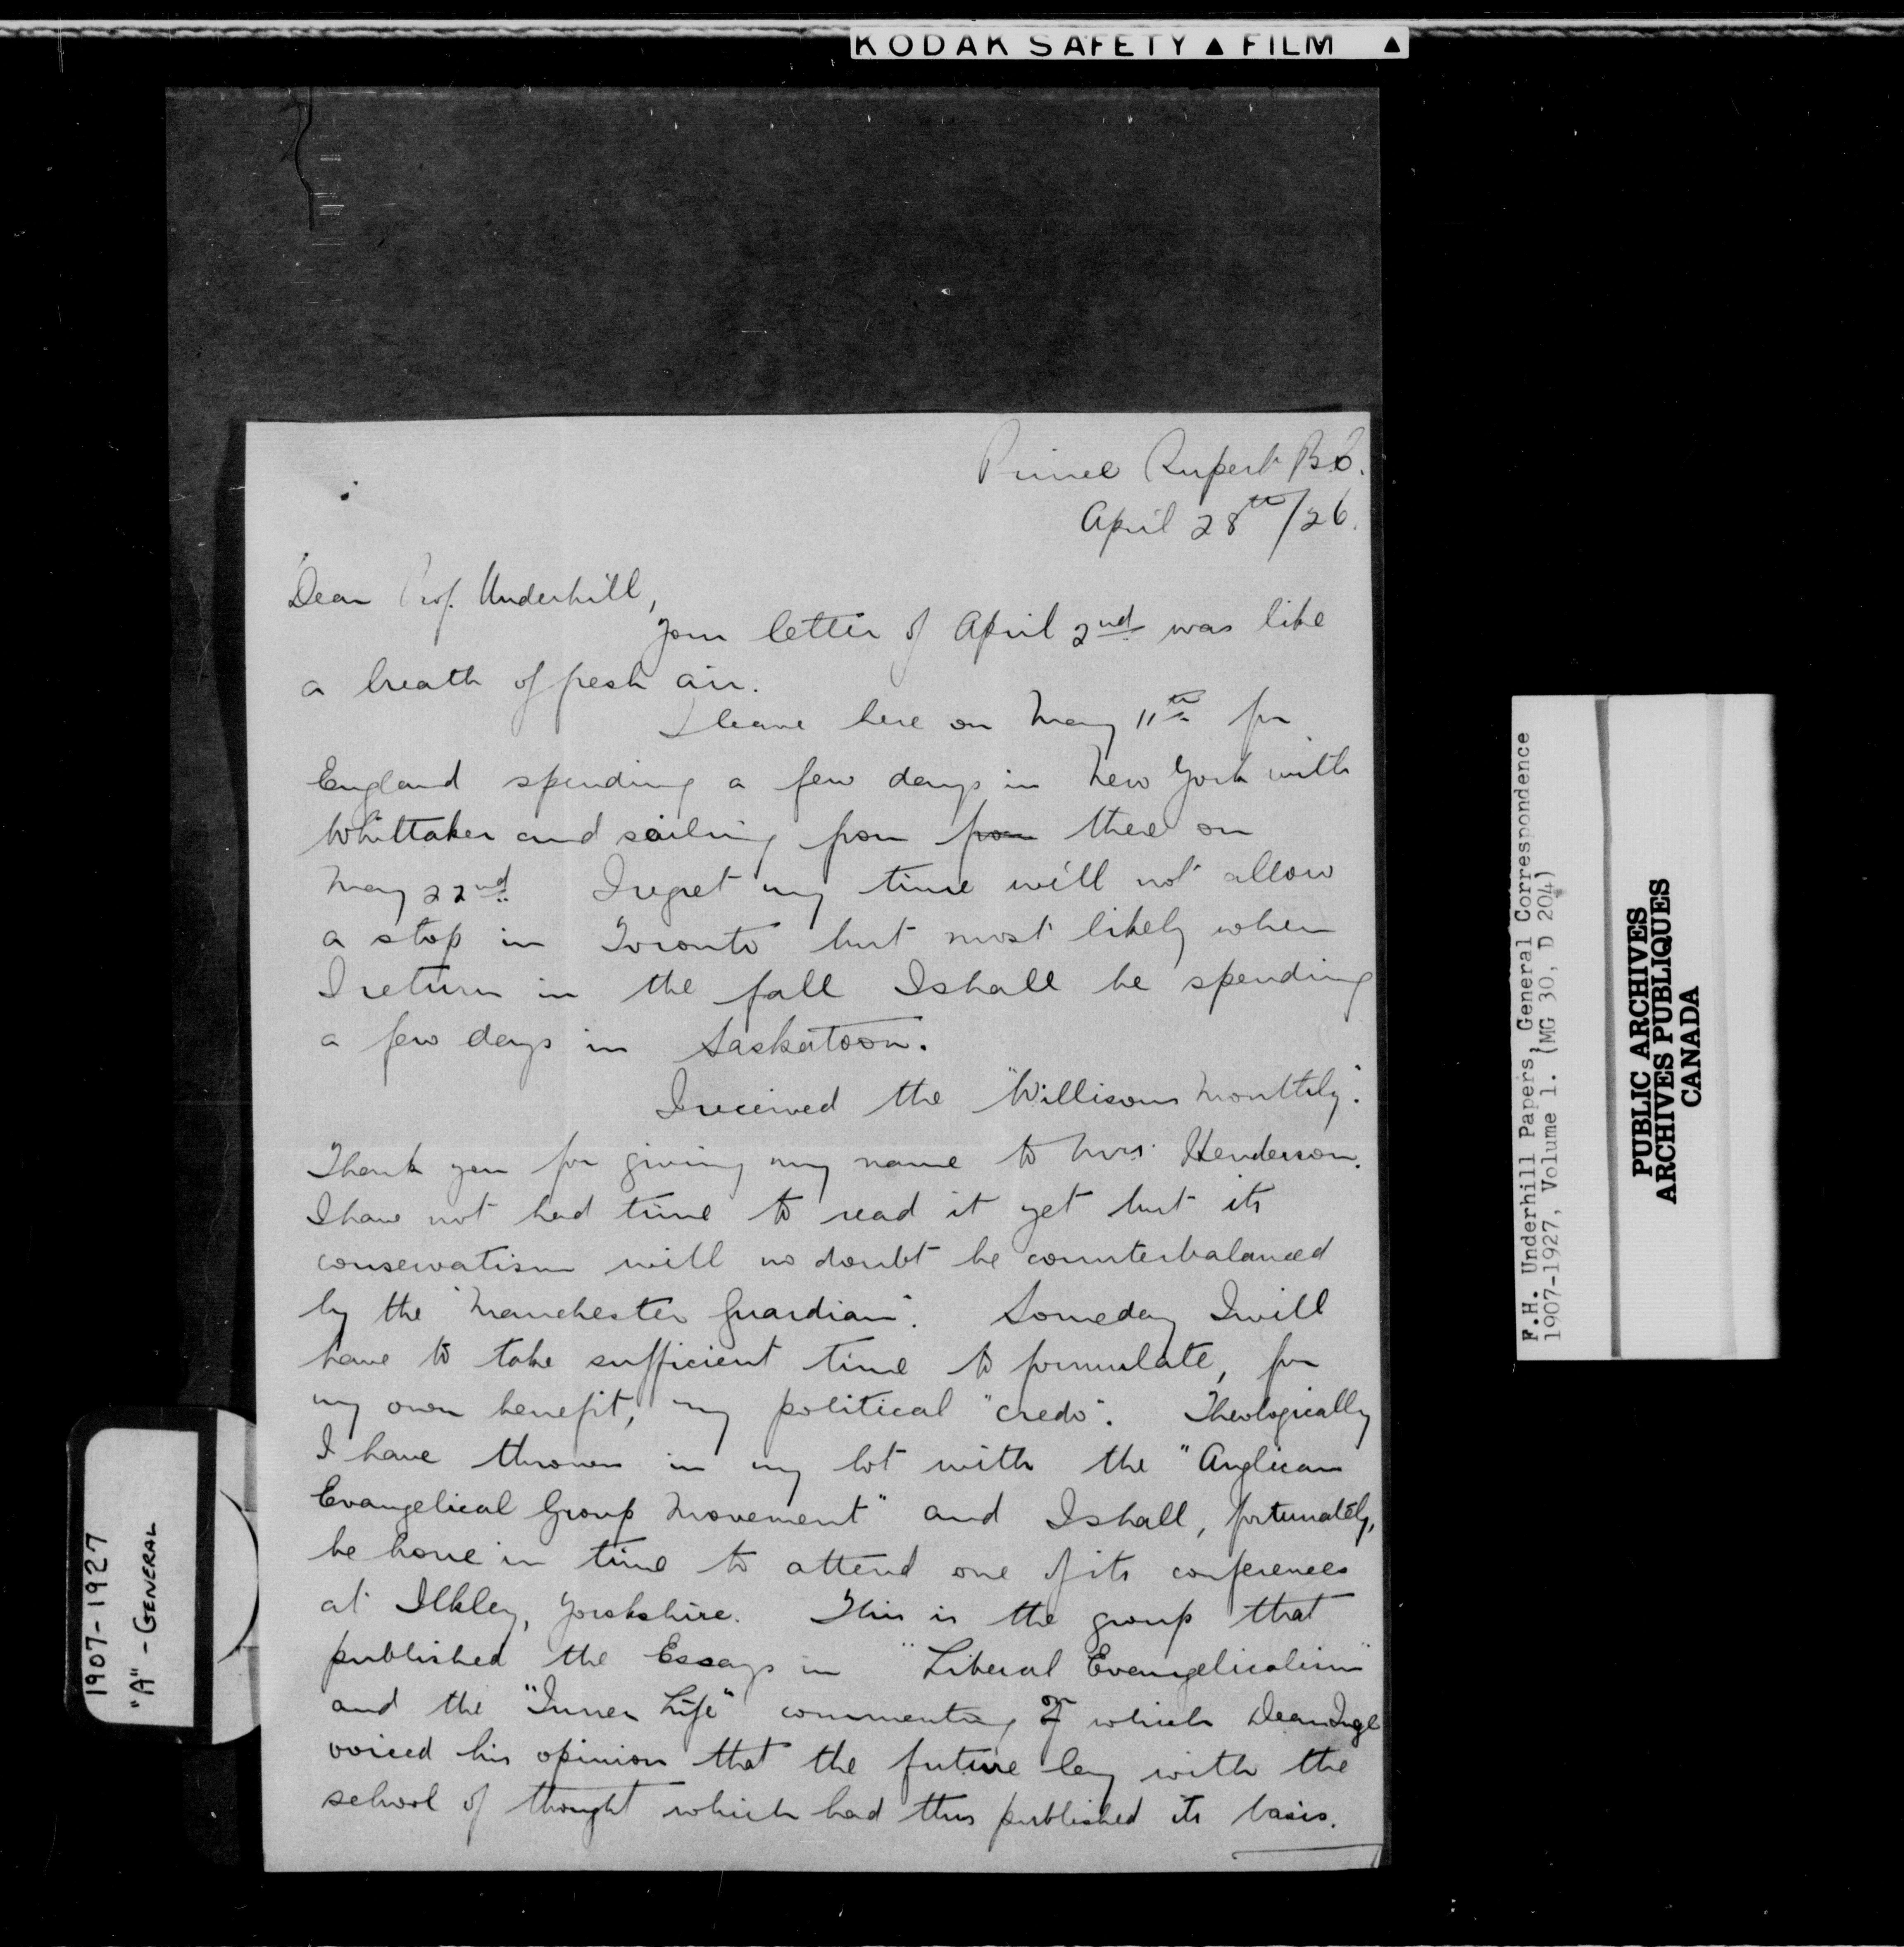 KODAK SAFETY ▲ FILM ▲
Prince Rupert B.C.
April 28th/26.
Dear Prof. Underhill,
Your letter of April 2nd was like
a breath of fresh air.
I leave here on May 11th for
England spending a few days in New York with
Whittaker and sailing from from there on
May 22nd. I regret my time will not allow
a stop in Toronto but most likely when
I return in the fall I shall be spending
a few days in Saskatoon.
I received the "Willisons Monthly".
Thank you for giving my name to Mrs. Henderson.
I have not had time to read it yet but its
conservatism will no doubt be counterbalanced
by the "Manchester Guardian". Someday I will
have to take sufficient time to formulate, for
my own benefit, my political "credo". Theologically
I have thrown in my lot with the "Anglican
Evangelical Group Movement" and I shall, fortunately,
be home in time to attend one of its conferences
at Ilkley, Yorkshire. This is the group that
published the Essays in "Liberal Evangelicalism"
and the "Inner Life" commenting of which Dean Inge
voiced his opinion that the future lay with the
school of thought which had thus published its basis.
1907-1927
"A" - GENERAL
F.H. Underhill Papers, General Correspondence
1907-1927, Volume 1. (MG 30, D 204)
PUBLIC ARCHIVES
ARCHIVES PUBLIQUES
CANADA